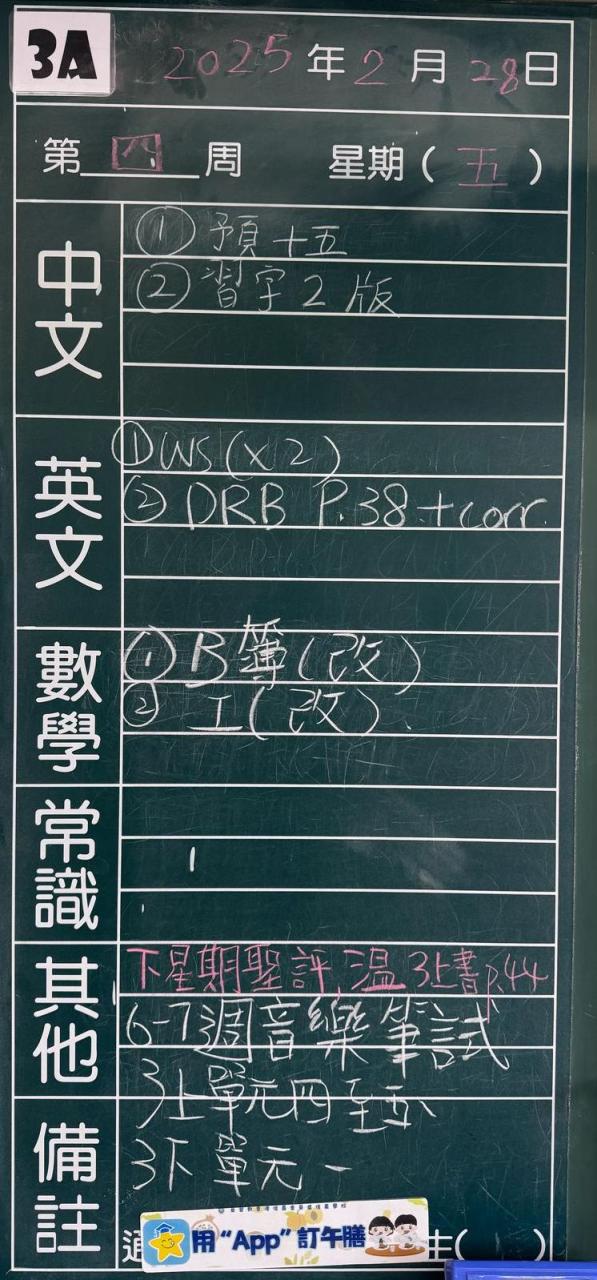 3A 2025年2月28日
第四周 星期(五)
中文
① 預十五
② 習字2版
英文
① WS(x2)
② DRB P.38+corr.
數學
① B簿(改)
② 工(改)
常識
其他
下星期聖評,溫3上書p.44
6-7週音樂筆試
備註
3上單元四至五
3下單元一
通
用“App”訂午膳
生( )